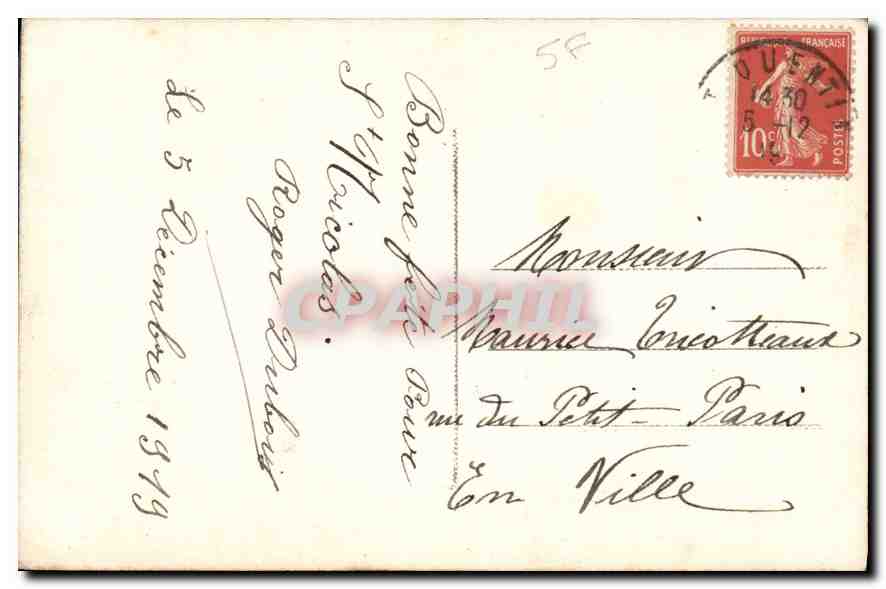 Bonne fête Pour
St Nicolas.
Roger Dubois
Le 5 Décembre 1919
5F
RÉPUBLIQUE FRANÇAISE
POSTES
10c
QUENTIN
14 30
5 -12
19
Monsieur
Maurice Tricotteaux
rue du Petit-Paris
En Ville
CPAPHIL